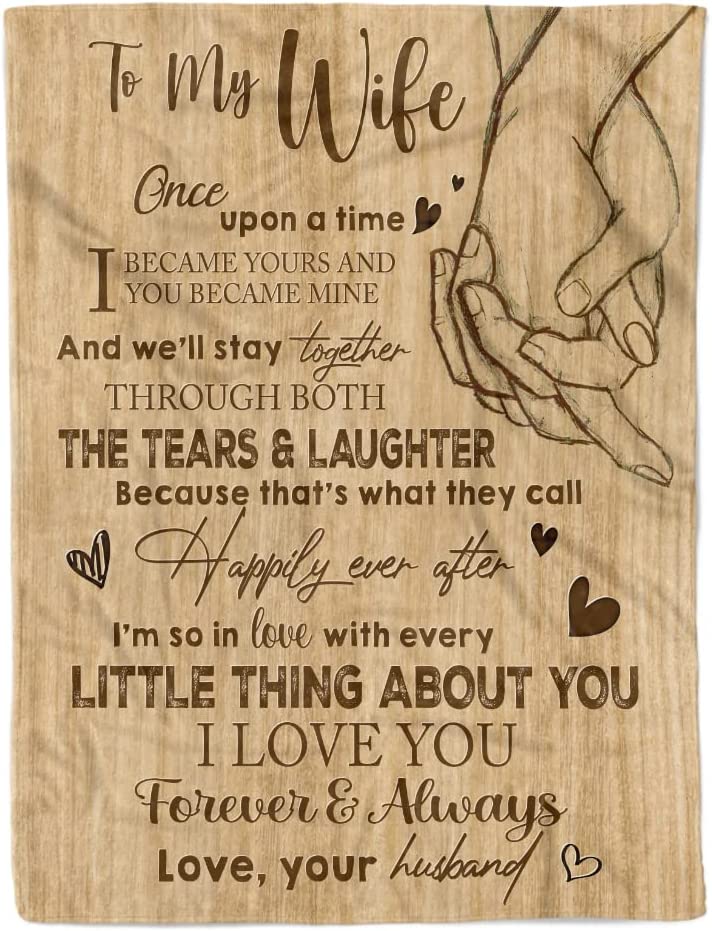 To My Wife
Once
upon a time
I BECAME YOURS AND
YOU BECAME MINE
And we'll stay together
THROUGH BOTH
THE TEARS & LAUGHTER
Because that's what they call
Happily ever after
I'm so in love with every
LITTLE THING ABOUT YOU
I LOVE YOU
Forever & Always
Love, your husband